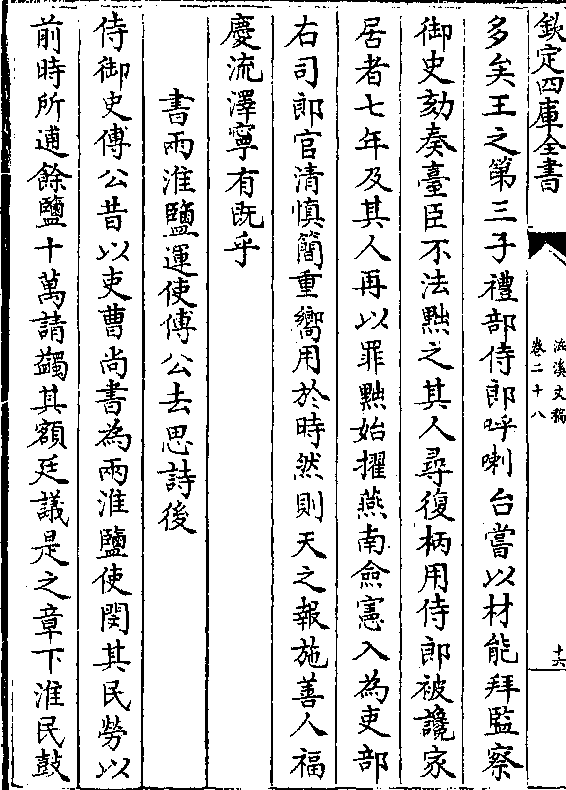 欽定四庫全書
洓溪文稿
卷二十八
十六
多矣王之第三子禮部侍郎呼喇台嘗以材能拜監察
御史劾奏臺臣不法黜之其人尋復柄用侍郎被讒家
居者七年及其人再以罪黜始擢燕南僉憲入為吏部
右司郎官清慎簡重嚮用於時然則天之報施善人福
慶流澤寧有既乎
書兩淮鹽運使傅公去思詩後
侍御史傅公昔以吏曹尚書為兩淮鹽使閔其民勞以
前時所逋餘鹽十萬請蠲其額廷議是之章下淮民鼓